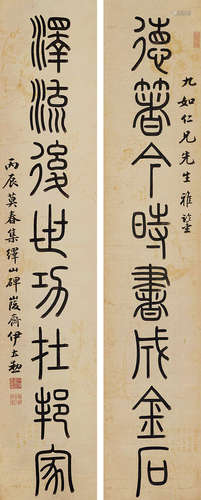 九如仁兄先生雅鉴
德箸今時書成金石
澤流後世功在邦家
丙辰莫春集繹山碑峻齋伊立勳